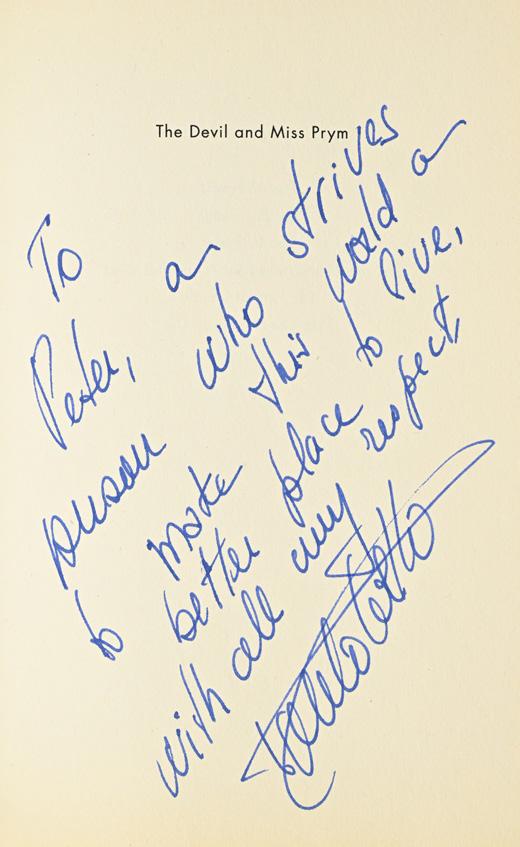 The Devil and Miss Prym
To
Peter, a
person who strives
to make this world a
better place to live,
with all my respect,